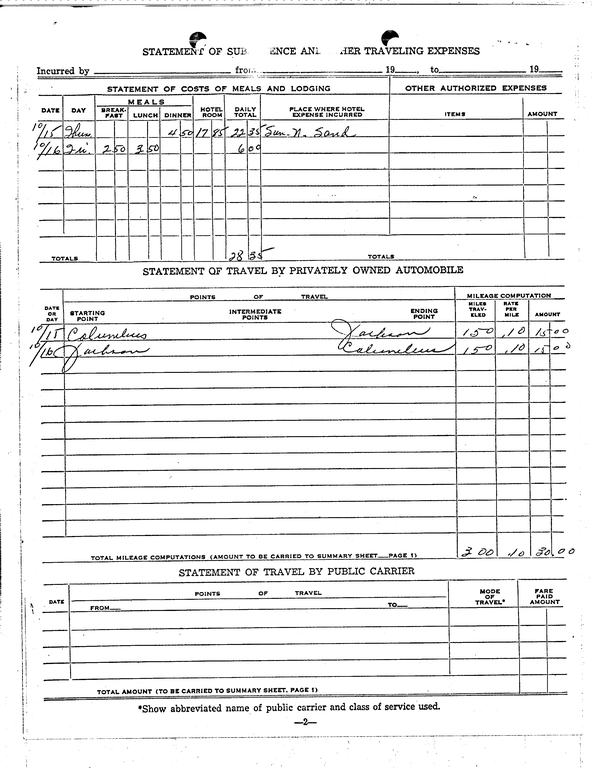 STATEMENT OF SUB ENCE AN HER TRAVELING EXPENSES
Incurred by from 19 , to 19
STATEMENT OF COSTS OF MEALS AND LODGING OTHER AUTHORIZED EXPENSES
DATE DAY MEALS BREAK-FAST LUNCH DINNER HOTEL ROOM DAILY TOTAL PLACE WHERE HOTEL EXPENSE INCURRED ITEMS AMOUNT
10/15 Thur. 4 50 17 85 22 35 Sun. N. Sand
10/16 Fri. 2 50 3 50 6 00
TOTALS 28 35 TOTALS
STATEMENT OF TRAVEL BY PRIVATELY OWNED AUTOMOBILE
POINTS OF TRAVEL MILEAGE COMPUTATION
DATE OR DAY STARTING POINT INTERMEDIATE POINTS ENDING POINT MILES TRAV-ELED RATE PER MILE AMOUNT
10/15 Columbus Jackson 150 .10 15 00
10/16 Jackson Columbus 150 .10 15 00
TOTAL MILEAGE COMPUTATIONS (AMOUNT TO BE CARRIED TO SUMMARY SHEET—PAGE 1) 300 .10 30.00
STATEMENT OF TRAVEL BY PUBLIC CARRIER
DATE POINTS OF TRAVEL MODE OF TRAVEL* FARE PAID AMOUNT
FROM— TO—
TOTAL AMOUNT (TO BE CARRIED TO SUMMARY SHEET, PAGE 1)
*Show abbreviated name of public carrier and class of service used.
—2—